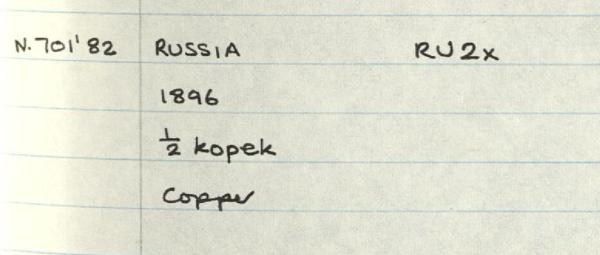 N.701'82 RUSSIA RU2x
1896
½ kopek
Copper